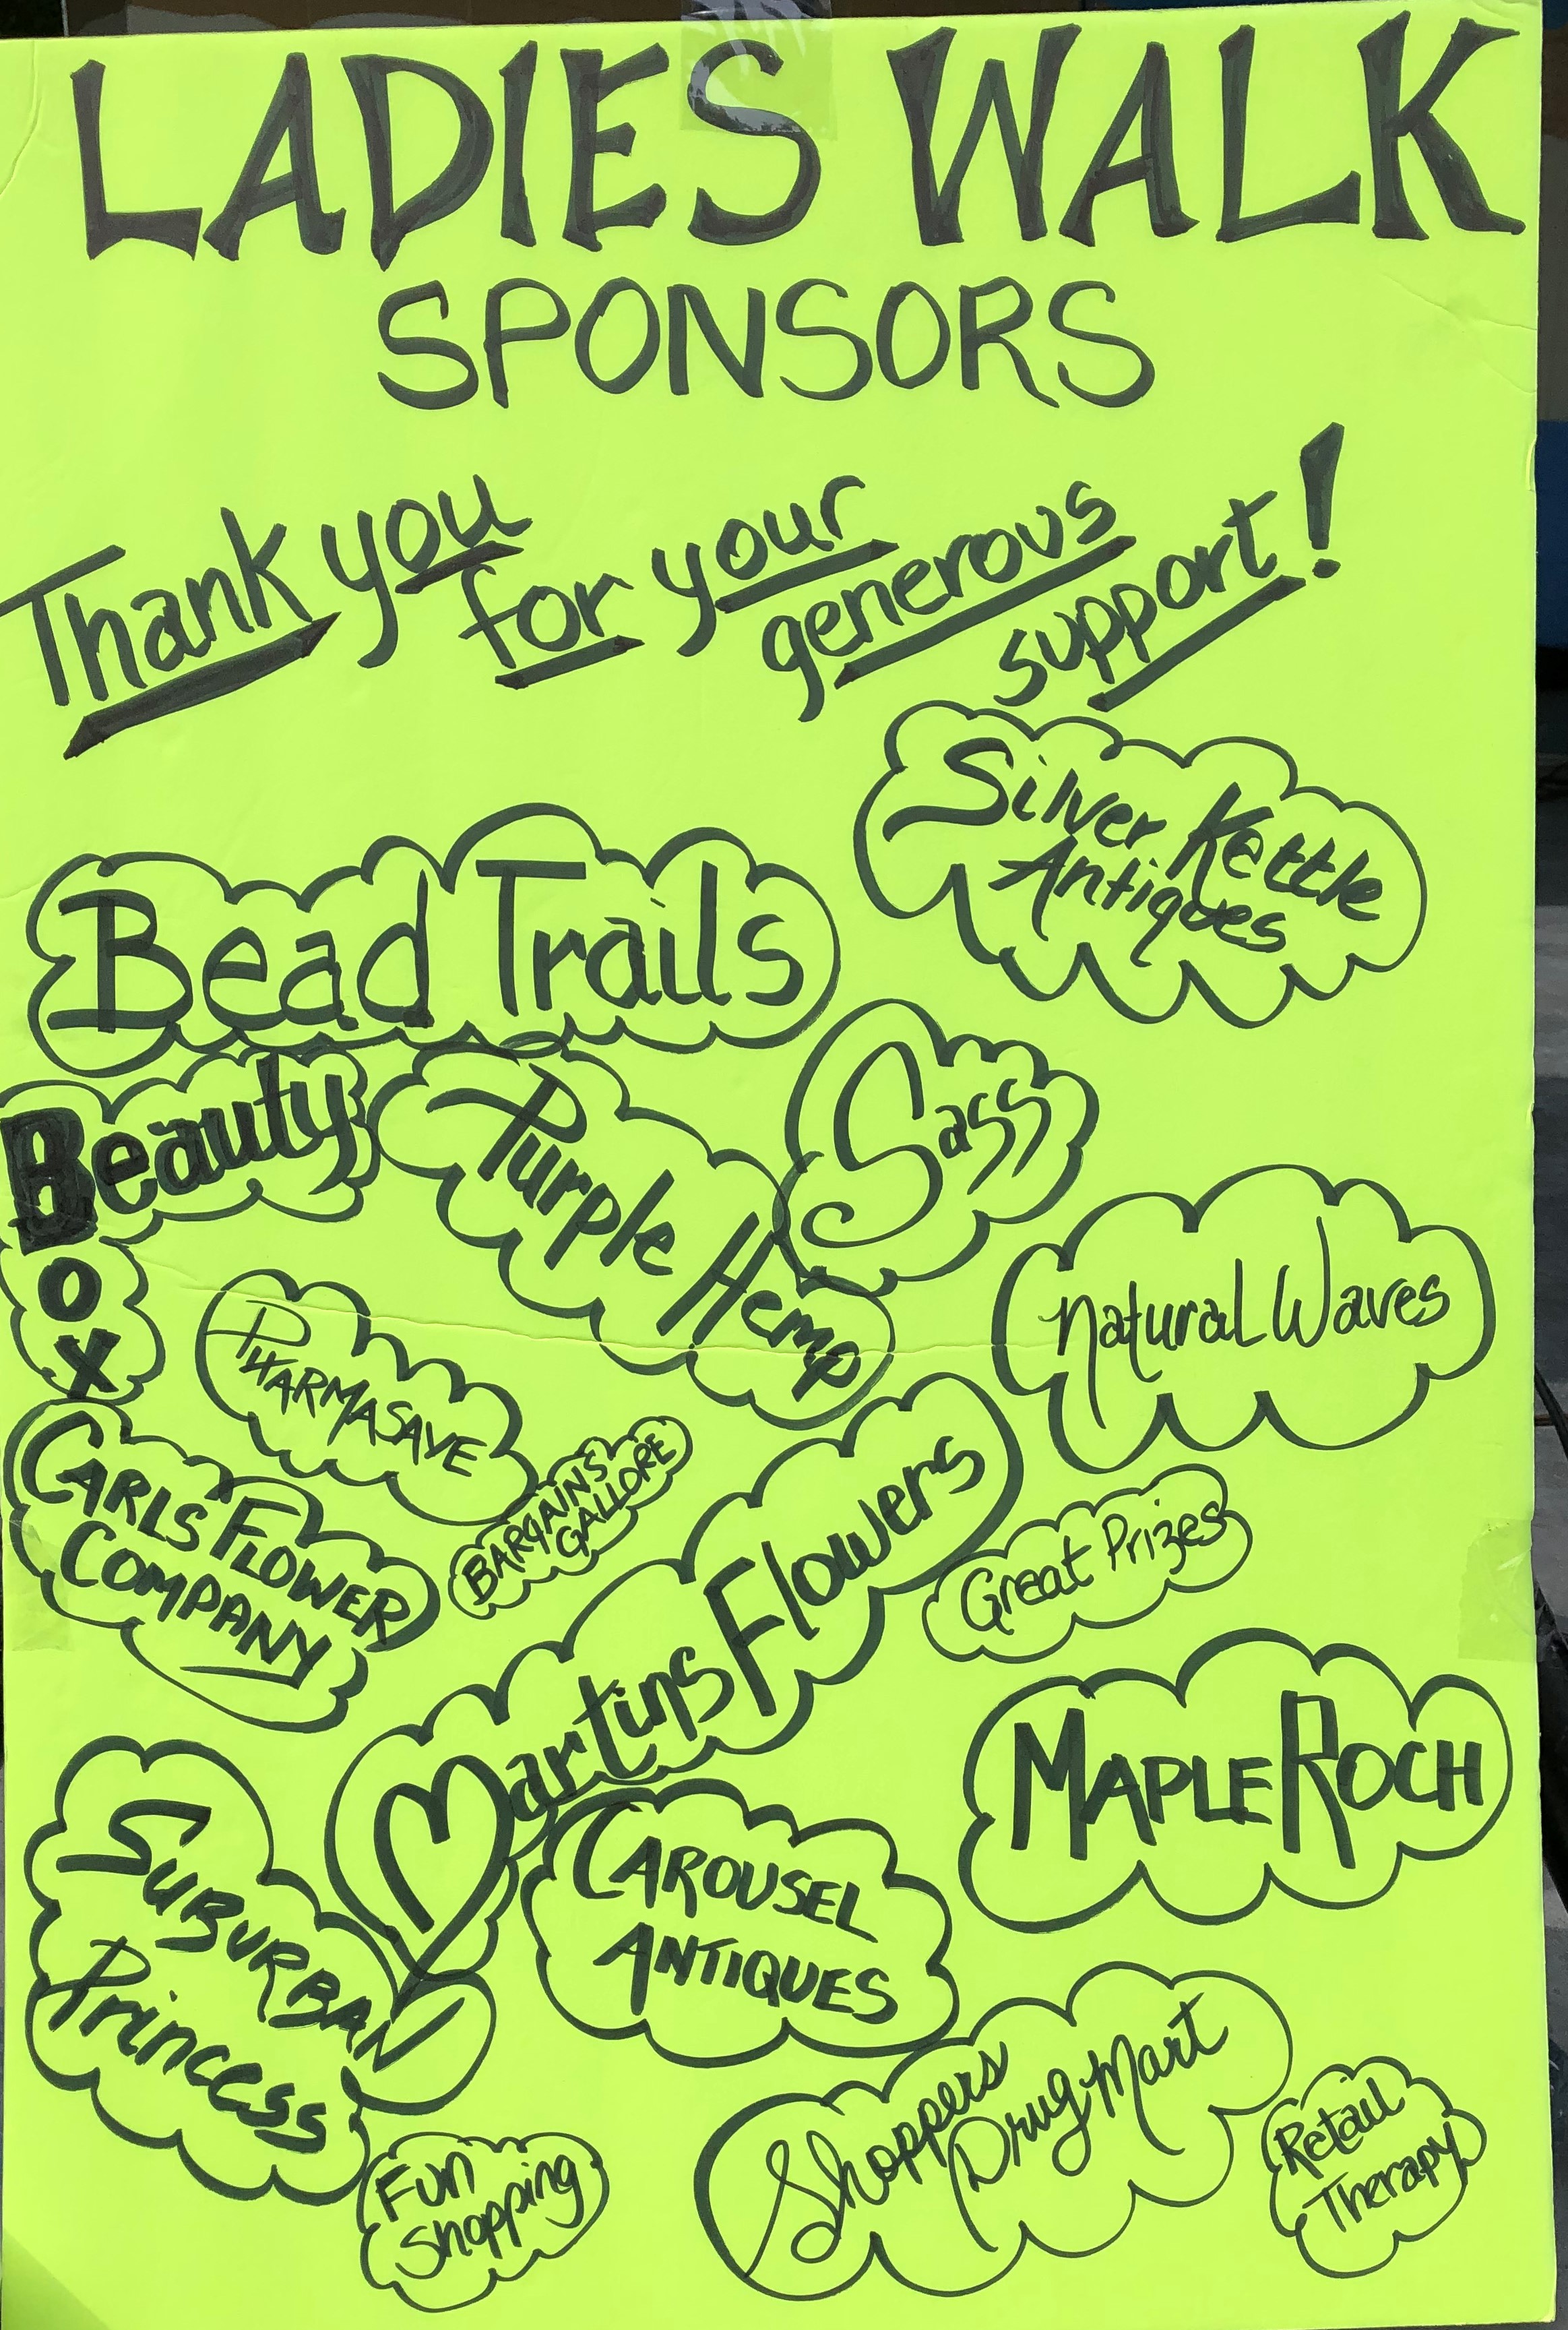 LADIES WALK
SPONSORS
Thank you
for your
generous
support!
Silver Kettle
Antiques
Bead Trails
Beauty
BOX
Purple Hemp
Sass
Natural Waves
PHARMASAVE
CARLS FLOWER
COMPANY
BARGAINS
GALLORE
Martins Flowers
Great Prizes
MAPLE ROCH
SUBURBAN
Princess
CAROUSEL
ANTIQUES
Shoppers
Drug Mart
Retail
Therapy
Fun
Shopping